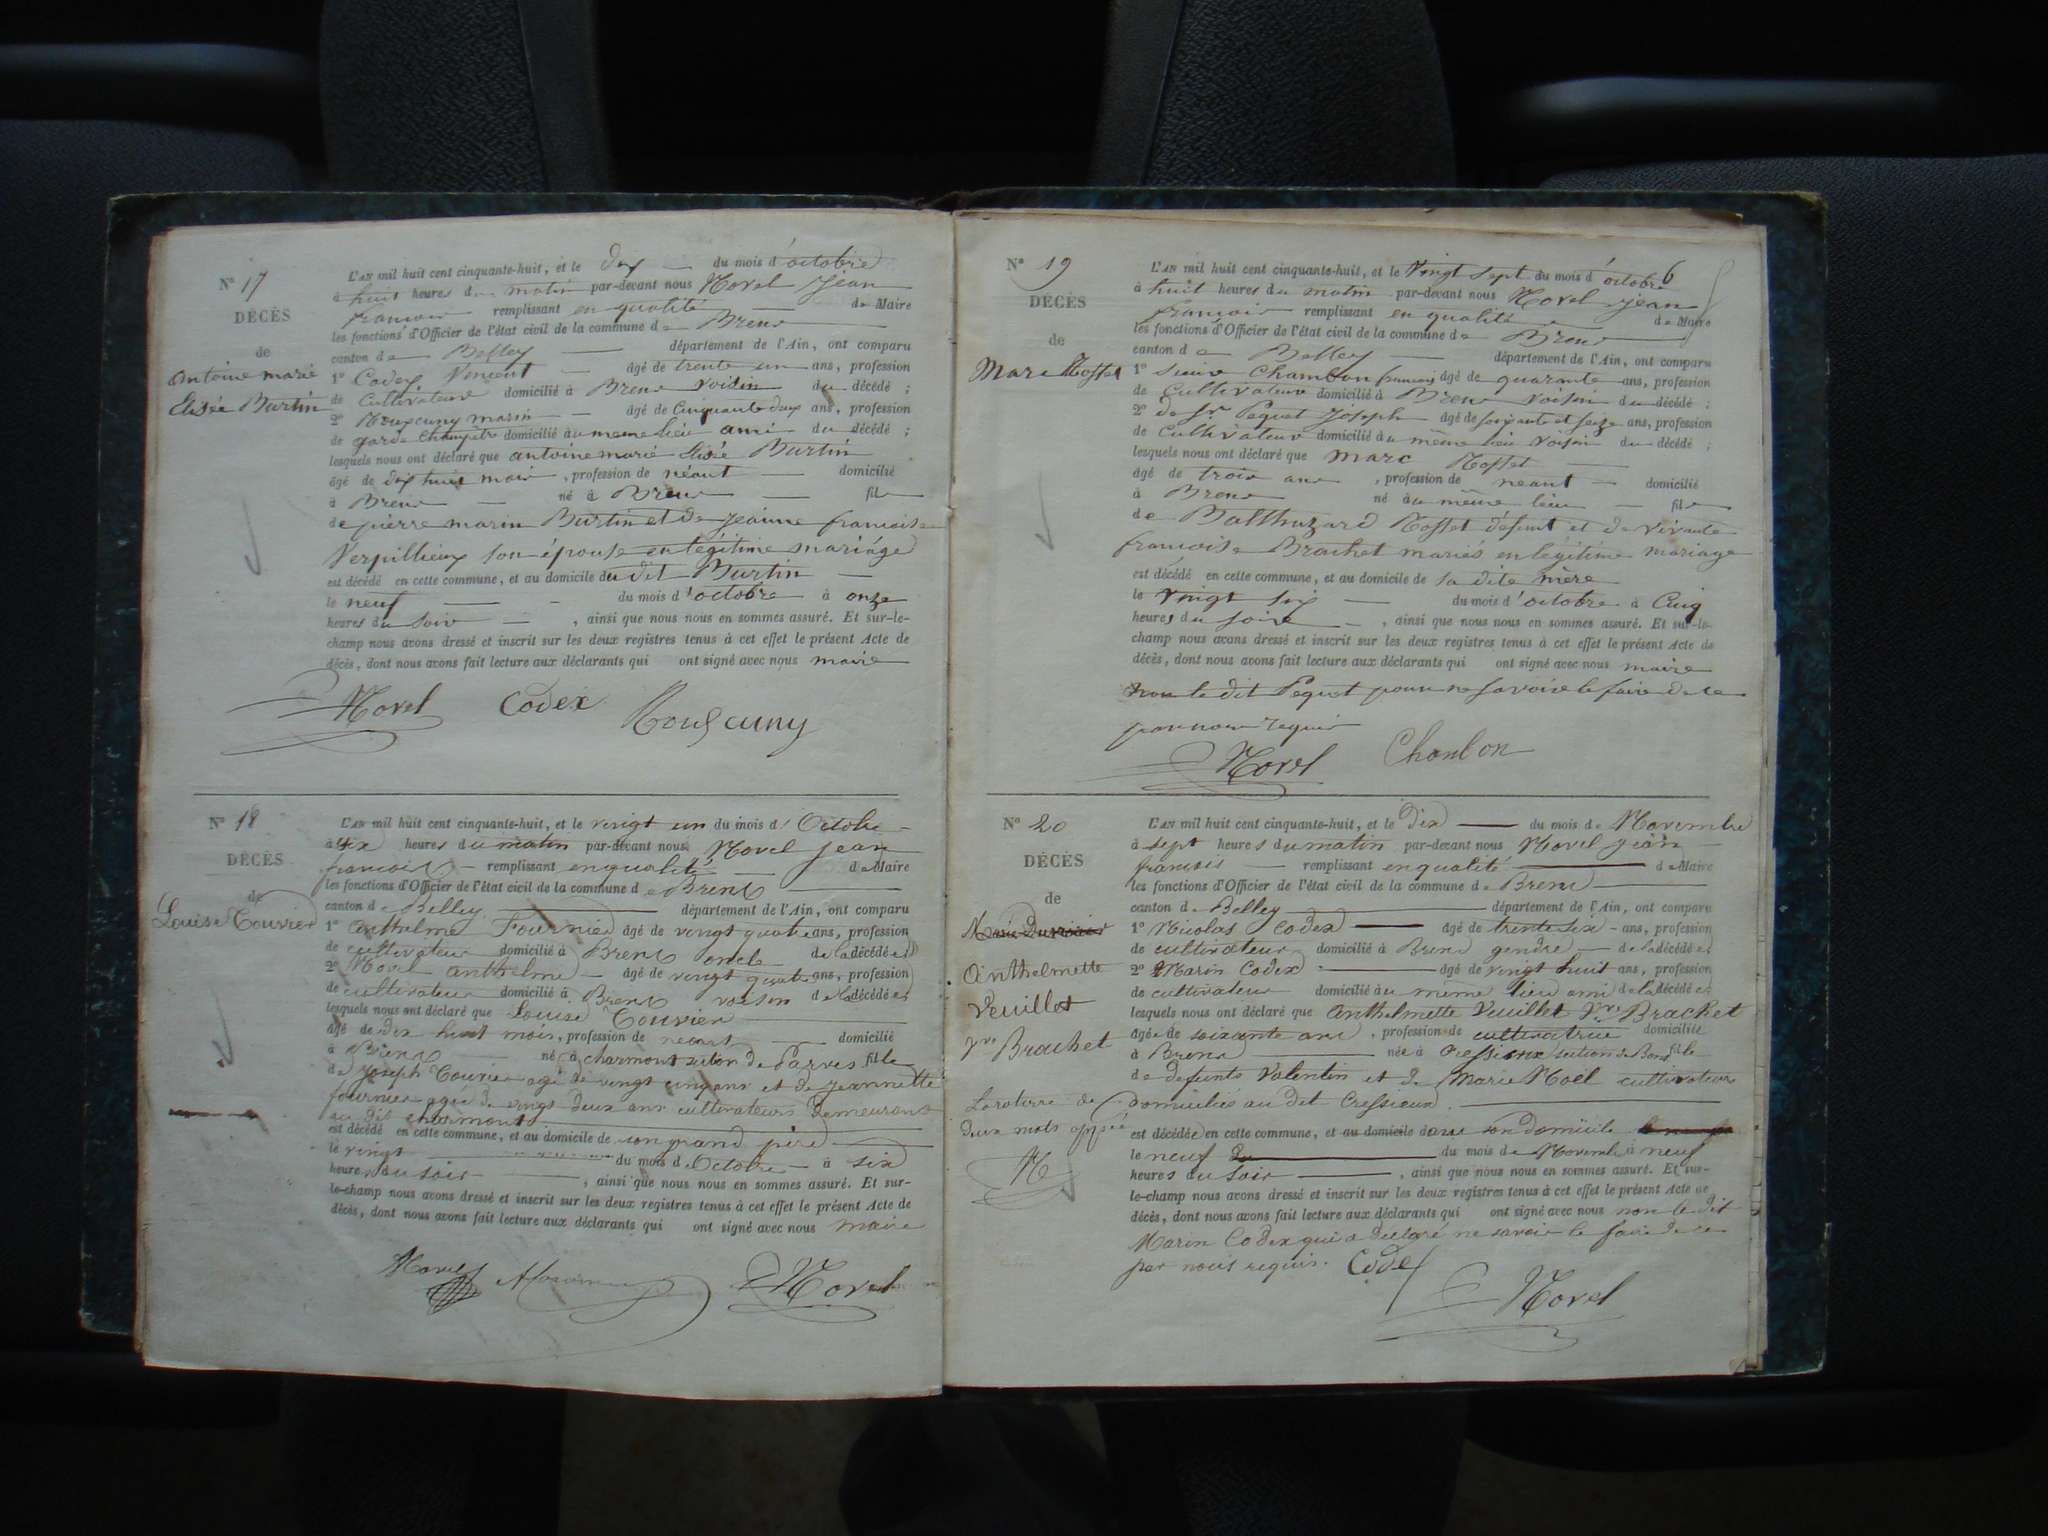 N° 17
DÉCÈS
de
Antoine marie
Elisée Burtin
L'AN mil huit cent cinquante-huit, et le dix du mois d'octobre
à huit heures du matin par-devant nous Morel Jean
françois remplissant en qualité de Maire
les fonctions d'Officier de l'état civil de la commune de Brens
canton de Belley département de l'Ain, ont comparu
1° Codex Vencent âgé de trente un ans, profession
de Cultivateur domicilié à Brens voisin du décédé ;
2° marin âgé de Cinquante deux ans, profession
de garde Champêtre domicilié au même lieu ami du décédé ;
lesquels nous ont déclaré que antoine marie Elisée Burtin
âgé de dix huit mois, profession de néant domicilié
à Brens né à Brens fils
de pierre marin Burtin et de Jeanne francoise
Verpillieux son épouse en légitime mariage
est décédé en cette commune, et au domicile du dit Burtin
le neuf du mois d'octobre à onze
heures du soir, ainsi que nous nous en sommes assuré. Et sur-le-
champ nous avons dressé et inscrit sur les deux registres tenus à cet effet le présent Acte de
décès, dont nous avons fait lecture aux déclarants qui ont signé avec nous maire
Morel Codex
N° 18
DÉCÈS
de
Louise Touvier
L'AN mil huit cent cinquante-huit, et le vingt un du mois d'Octobre
à six heures du matin par-devant nous Morel Jean
francois remplissant en qualité de Maire
les fonctions d'Officier de l'état civil de la commune de Brens
canton de Belley département de l'Ain, ont comparu
1° Anthelme Fournier âgé de vingt quatre ans, profession
de cultivateur domicilié à Brens oncle de la décédée
2° Morel anthelme âgé de vingt quatre ans, profession
de cultivateur domicilié à Brens voisin de la décédée
lesquels nous ont déclaré que Louise Touvier
âgé de dix huit mois, profession de néant domicilié
à Brens né à charmont section de Parves fille
de Joseph Touvier agé de vingt cinq ans et de Jeannette
fournier agée de vingt deux ans cultivateurs demeurant
au dit charmont
est décédé en cette commune, et au domicile de son grand père
le vingt du mois d'Octobre à six
heures du soir, ainsi que nous nous en sommes assuré. Et sur-
le-champ nous avons dressé et inscrit sur les deux registres tenus à cet effet le présent Acte de
décès, dont nous avons fait lecture aux déclarants qui ont signé avec nous maire
Morel Morel
6
N° 19
DÉCÈS
de
Marc Rosset
L'AN mil huit cent cinquante-huit, et le Vingt sept du mois d'octobre
à huit heures du matin par-devant nous Morel Jean
françois remplissant en qualité de Maire
les fonctions d'Officier de l'état civil de la commune de Brens
canton de Belley département de l'Ain, ont comparu
1° Sieur Chambon françois âgé de quarante ans, profession
de Cultivateur domicilié à Brens voisin du décédé ;
2° de Sr Peguet Joseph âgé de soixante et seize ans, profession
de Cultivateur domicilié au même lieu voisin du décédé ;
lesquels nous ont déclaré que Marc Rosset
âgé de trois ans, profession de neant domicilié
à Brens né au même lieu fils
de Balthazard Rosset défunt et de vivante
francoise Brachet mariés en légitime mariage
est décédé en cette commune, et au domicile de sa dite mère
le Vingt Six du mois d'octobre à Cinq
heures du soire, ainsi que nous nous en sommes assuré. Et sur-le-
champ nous avons dressé et inscrit sur les deux registres tenus à cet effet le présent Acte de
décès, dont nous avons fait lecture aux déclarants qui ont signé avec nous maire
non le dit Peguet pour ne savoire le faire de ce
par nous requis
Morel Chambon
N° 20
DÉCÈS
de
Anthelmette
Veuillet
Vve Brachet
L'AN mil huit cent cinquante-huit, et le Dix du mois de Novembre
à sept heures du matin par-devant nous Morel Jean
françois remplissant en qualité de Maire
les fonctions d'Officier de l'état civil de la commune de Brens
canton de Belley département de l'Ain, ont comparu
1° Nicolas Codex âgé de trente six ans, profession
de cultivateur domicilié à Brens gendre de la décédée
2° Marin Codex âgé de vingt huit ans, profession
de cultivateur domicilié au même lieu ami de la décédée
lesquels nous ont déclaré que Anthelmette Veuillet Vve Brachet
âgée de soixante ans, profession de cultivatrice domiciliée
à Brens née à Cressieux section de fille
de defunts Valentin et de Marie Noël cultivateurs
domiciliés au dit Cressieux.
La rature de
deux mots
M
est décédée en cette commune, et au domicile dans son domicile
le neuf du mois de Novembre à neuf
heures du Soir, ainsi que nous nous en sommes assuré. Et sur-
le-champ nous avons dressé et inscrit sur les deux registres tenus à cet effet le présent Acte de
décès, dont nous avons fait lecture aux déclarants qui ont signé avec nous non le dit
Marin Codex qui a déclaré ne savoir le faire de ce
par nous requis. Codex
Morel